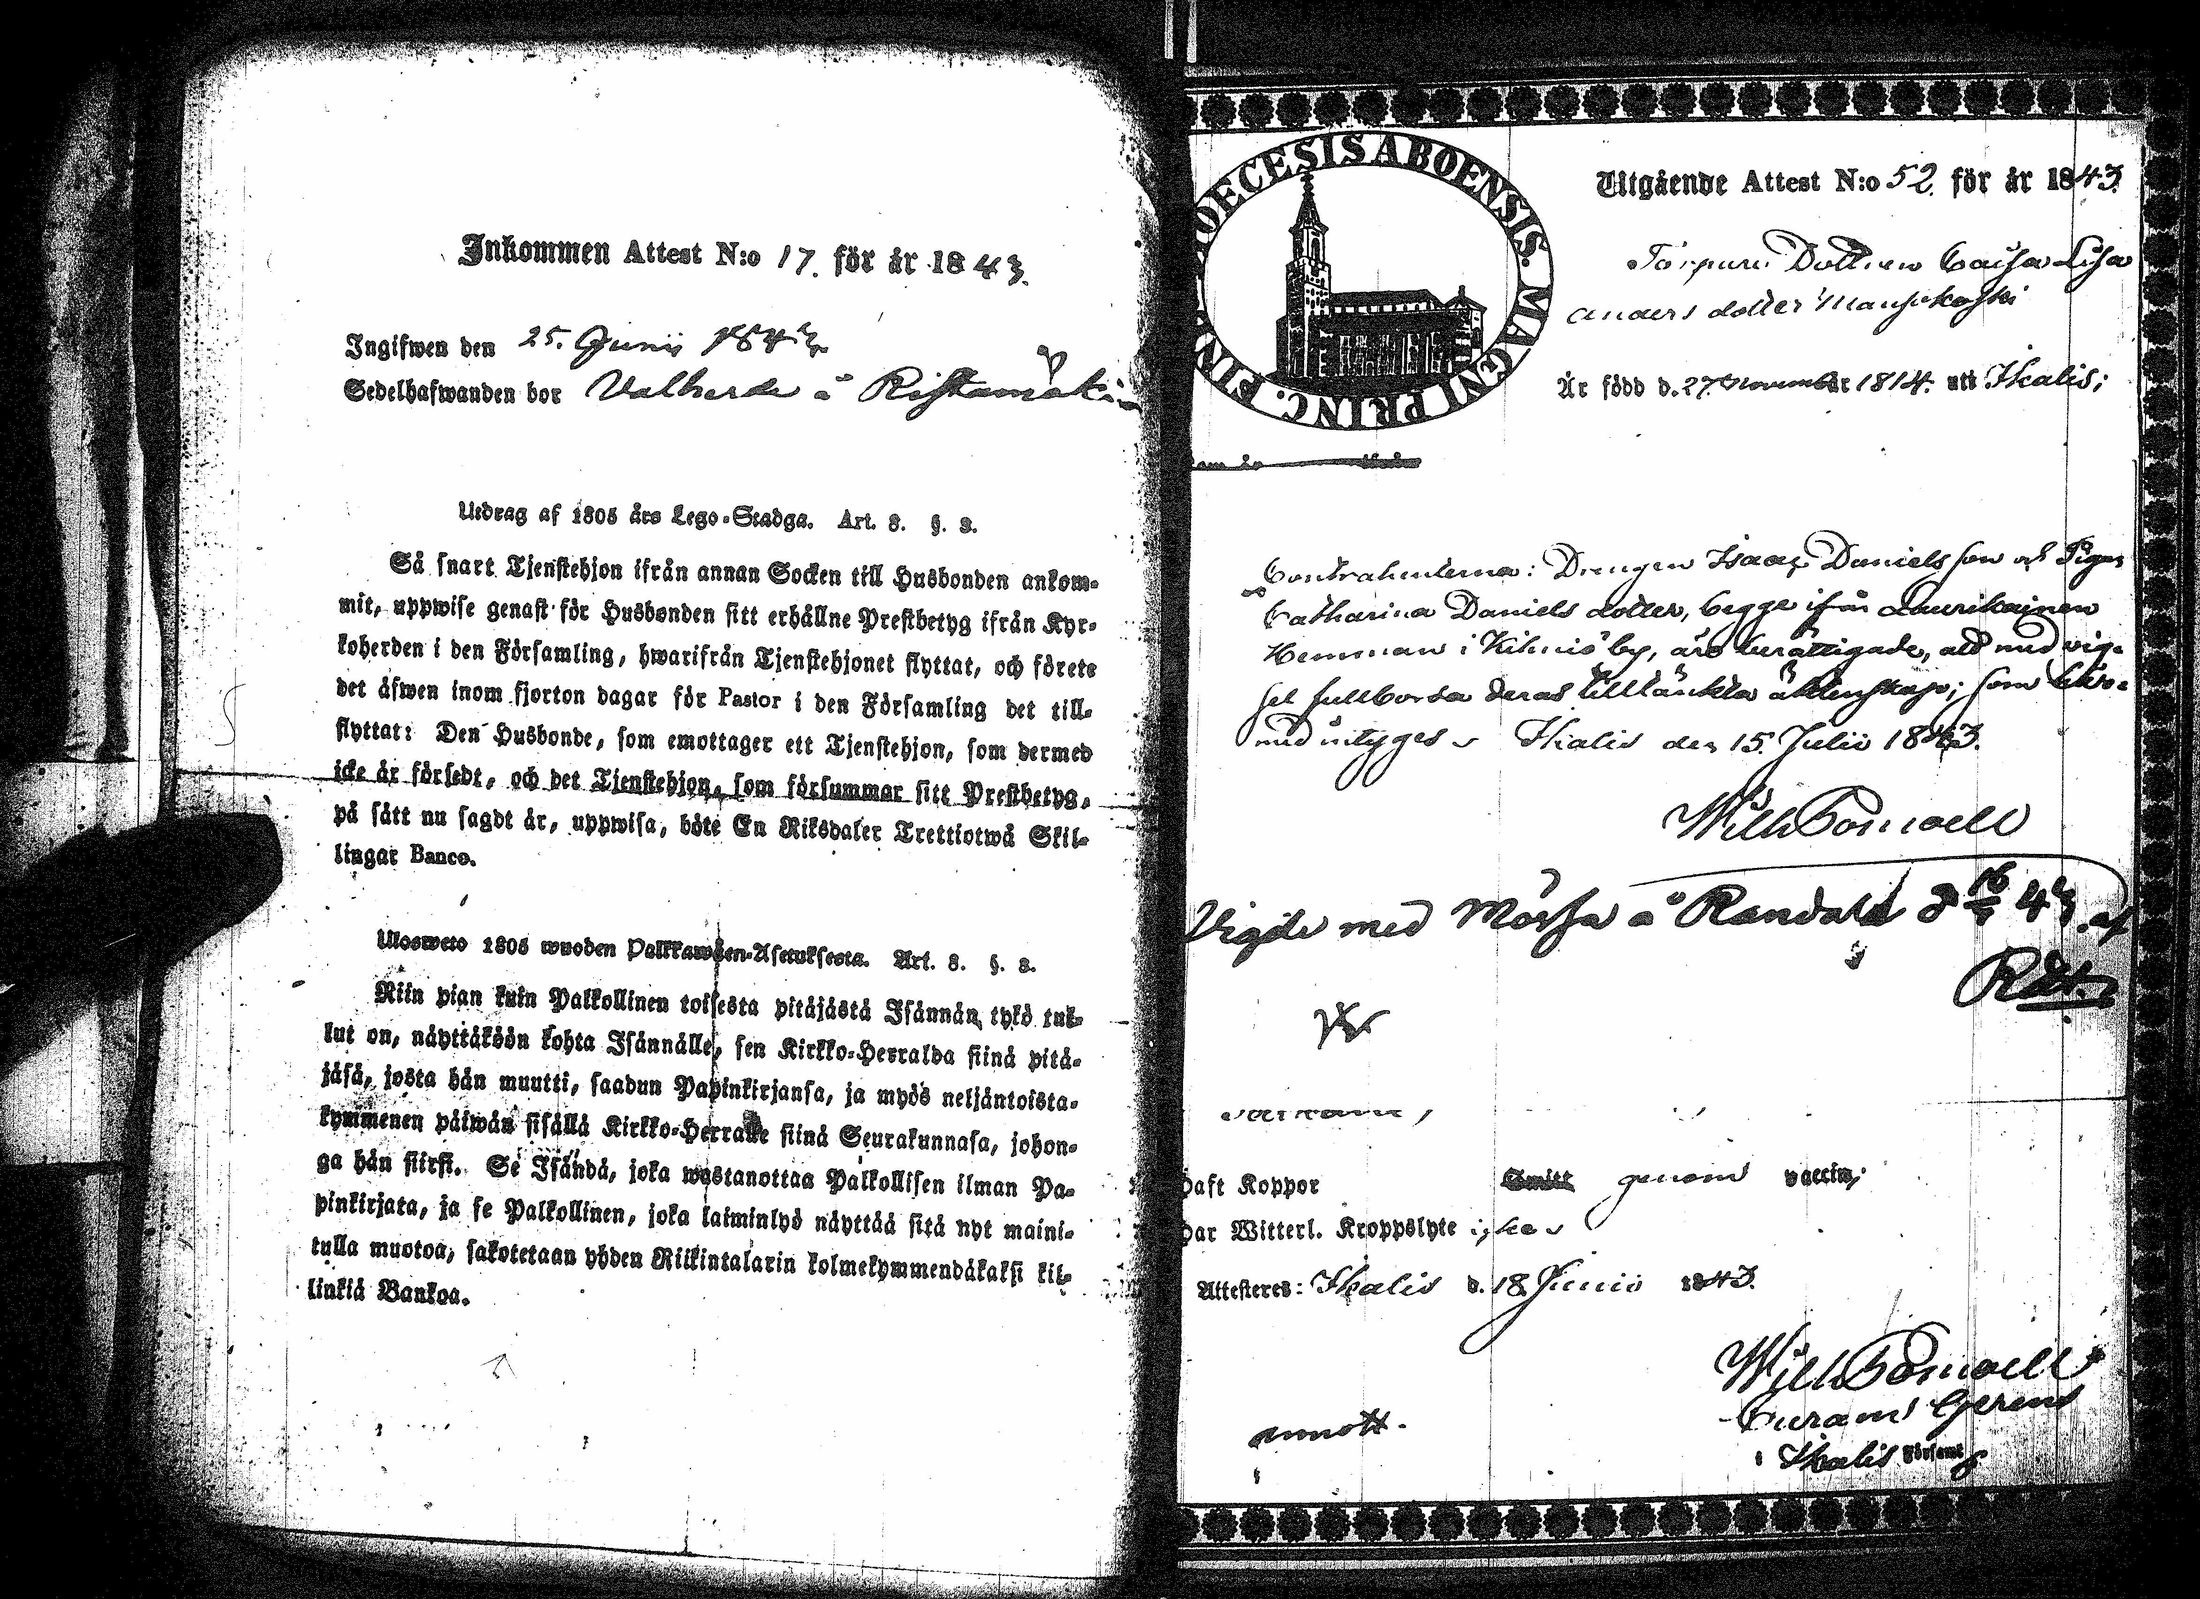 Inkommen Attest N:o 17. för år 1843.
Ingifwen den 25. Junii 1843
Sedelhafwanden bor Valherde å Ristamäki
Utdrag af 1805 års Lego-Stadga. Art. 8. §. 3.
Så snart Tjenstehjon ifrån annan Socken till Husbonden ankom-
mit, uppwise genast för Husbonden sitt erhållne Prestbetyg ifrån Kyr-
koherden i den Församling, hwarifrån Tjenstehjonet flyttat, och förete
det äfwen inom fjorton dagar för Pastor i den Församling det till-
flyttat: Den Husbonde, som emottager ett Tjenstehjon, som dermed
icke är försedt, och det Tjenstehjon, som försummar sitt Prestbetyg,
på sätt nu sagdt är, uppwisa, böte En Riksdaler Trettiotwå Skil-
lingar Banco.
Ulosweto 1805 wuoden Palkkawäen-Asetuksesta. Art. 8. §. 3.
Niin pian kuin Palkollinen toisesta pitäjästä Isännän tykö tul-
lut on, näyttäköön kohta Isännälle, sen Kirkko-Herralda siinä pitä-
jäsä, josta hän muutti, saadun Papinkirjansa, ja myös neljäntoista-
kymmenen päiwän sisällä Kirkko-Herralle siinä Seurakunnasa, johon-
ga hän siirsi. Se Isändä, joka wastanottaa Palkollisen ilman Pa-
pinkirjata, ja se Palkollinen, joka laiminlyö näyttää sitä nyt maini-
tulla muotoa, sakotetaan yhden Riikintalarin kolmekymmendäkaksi kil-
linkiä Bankoa.
DIOECESIS ABOENSIS. MAGNI PRINC. FIN
Utgående Attest N:o 52. för år 1843.
Torpare Dottren Caisa Lisa
Anders dotter Mansikoski
Är född d. 27. November 1814. uti Ikalis;
Contrahenterna: Drengen Isaac Danielsson och Pigan
Catharina Daniels dotter, begge ifrån Laurikainen
Hemman i Kihniö by, äro berättigade, att med vig-
sel fullborda deras tilltänkta äktenskap; som här-
med intyges. Ikalis den 15. Julii 1843.
Wilh
Vigde med Mässa å Randala d 16 43. af
Rdt.
haft Koppor genom vaccin;
har Witterl. Kroppslyte icke
Attesteres: Ikalis d. 18. Junii 1843.
Wilh
Curam Gerens
i Ikalis Förssaml
annott.